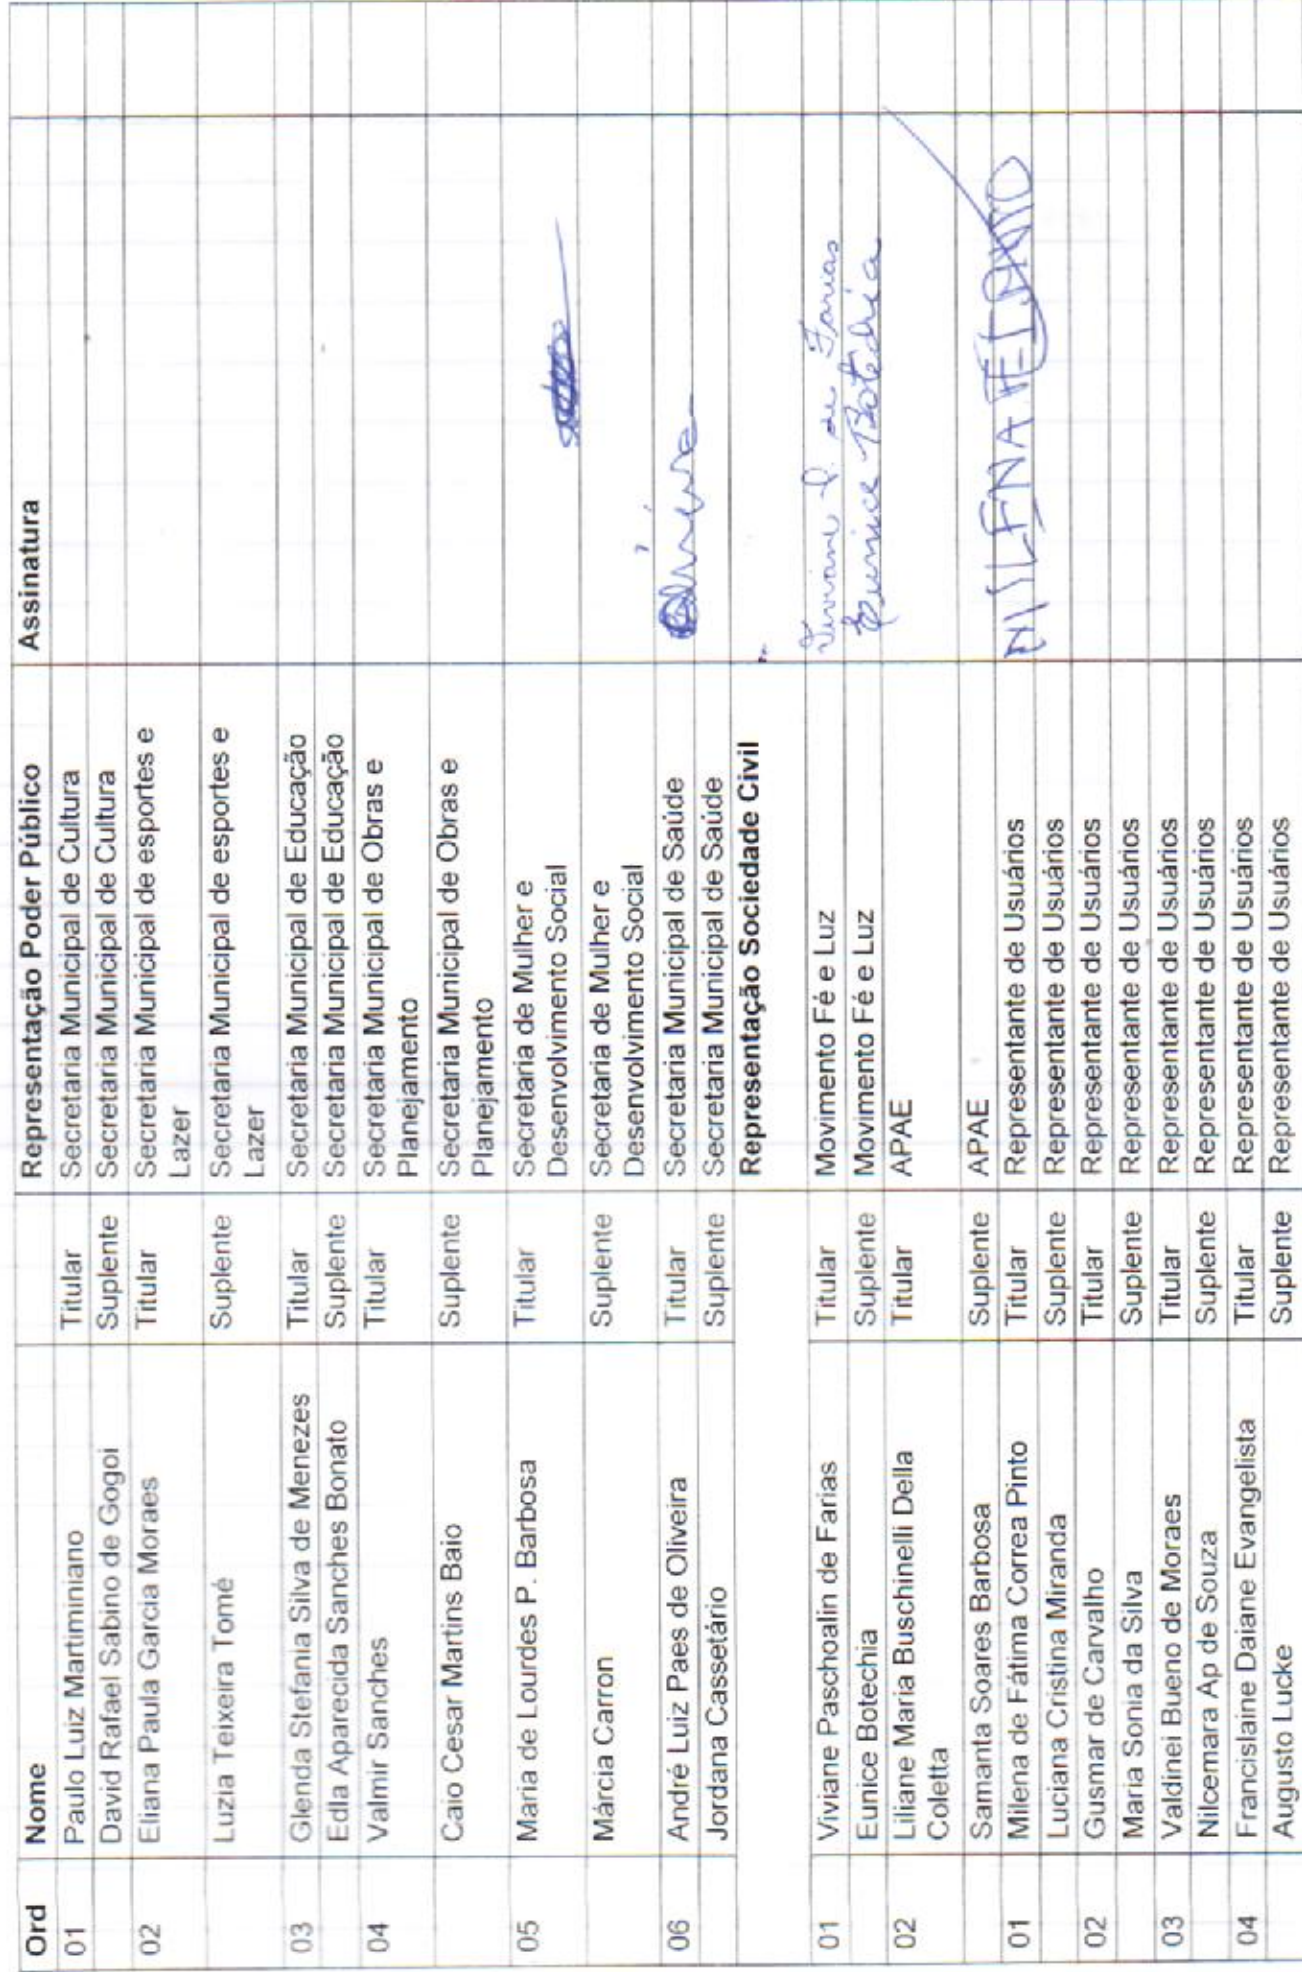 Ord Nome Representação Poder Público Assinatura
01 Paulo Luiz Martiminiano Titular Secretaria Municipal de Cultura
David Rafael Sabino de Gogoi Suplente Secretaria Municipal de Cultura
02 Eliana Paula Garcia Moraes Titular Secretaria Municipal de esportes e
Lazer
Luzia Teixeira Tomé Suplente Secretaria Municipal de esportes e
Lazer
03 Glenda Stefania Silva de Menezes Titular Secretaria Municipal de Educação
Edla Aparecida Sanches Bonato Suplente Secretaria Municipal de Educação
04 Valmir Sanches Titular Secretaria Municipal de Obras e
Planejamento
Caio Cesar Martins Baio Suplente Secretaria Municipal de Obras e
Planejamento
05 Maria de Lourdes P. Barbosa Titular Secretaria de Mulher e
Desenvolvimento Social
Márcia Carron Suplente Secretaria de Mulher e
Desenvolvimento Social
06 André Luiz Paes de Oliveira Titular Secretaria Municipal de Saúde
Jordana Cassetário Suplente Secretaria Municipal de Saúde
Representação Sociedade Civil
01 Viviane Paschoalin de Farias Titular Movimento Fé e Luz Viviane P. de Farias
Eunice Botechia Suplente Movimento Fé e Luz Eunice Botechia
02 Liliane Maria Buschinelli Della Titular APAE
Coletta
Samanta Soares Barbosa Suplente APAE
01 Milena de Fátima Correa Pinto Titular Representante de Usuários
Luciana Cristina Miranda Suplente Representante de Usuários
02 Gusmar de Carvalho Titular Representante de Usuários
Maria Sonia da Silva Suplente Representante de Usuários
03 Valdinei Bueno de Moraes Titular Representante de Usuários
Nilcemara Ap de Souza Suplente Representante de Usuários
04 Francislaine Daiane Evangelista Titular Representante de Usuários
Augusto Lucke Suplente Representante de Usuários